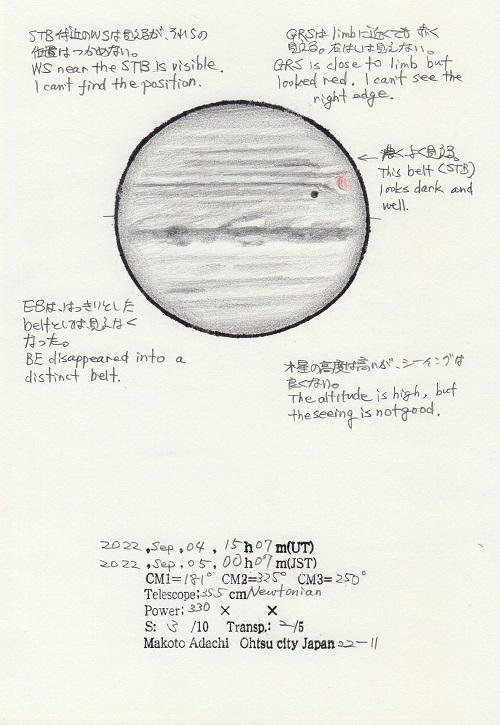 STB付近のWSは見えるが、それらの
位置はつかめない。
WS near the STB is visible.
I can't find the position.
GRSはlimbに近くても赤く
見える。右はしは見えない。
GRS is close to limb but
looked red. I can't see the
right edge.
← よく見える。
This belt (STB)
looks dark and
well.
EBは、はっきりとした
beltとしては見えなく
なった。
BE disappeared into a
distinct belt.
木星の高度は高いが、シーイングは
良くない。
The altitude is high, but
the seeing is not good.
2022, Sep, 04, 15h07m(UT)
2022, Sep, 05, 00h07m(JST)
CM1=181° CM2=325° CM3=250°
Telescope; 35.5cm Newtonian
Power; 330 × ×
S: 3 /10 Transp.: 2/5
Makoto Adachi Ohtsu city Japan 22-11